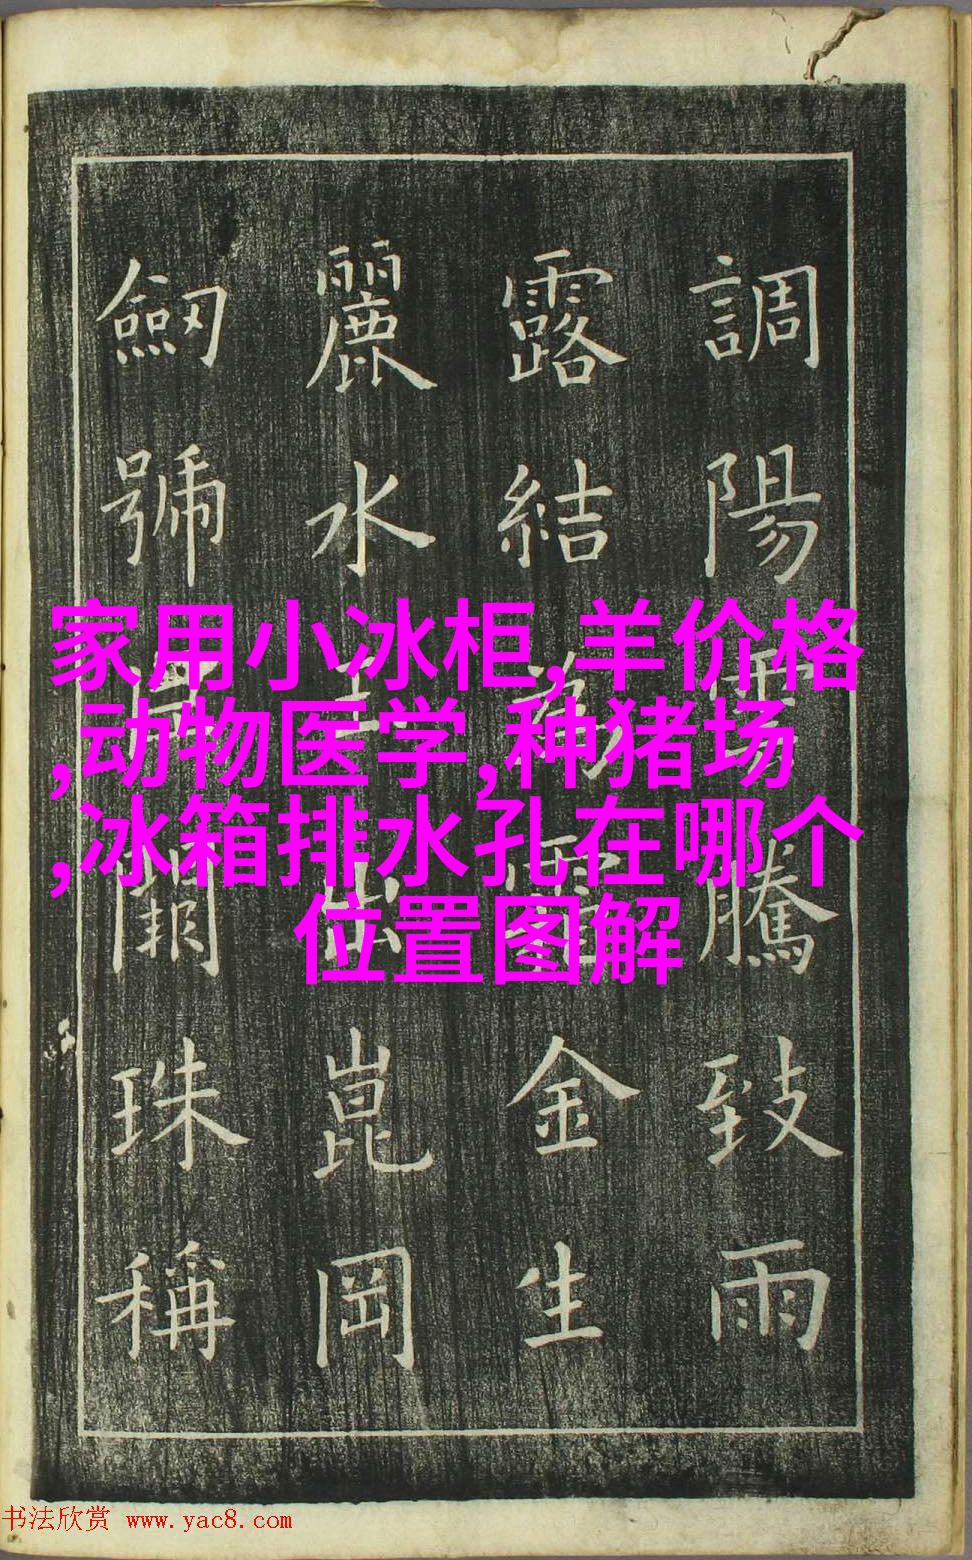 調陽雲騰致雨
露結為霜金生
麗水玉出崑岡
劒號巨闕珠稱
家用小冰柜,羊价格
,动物医学,种猪场
,冰箱排水孔在哪个
位置图解
书法欣赏 www.yac8.com